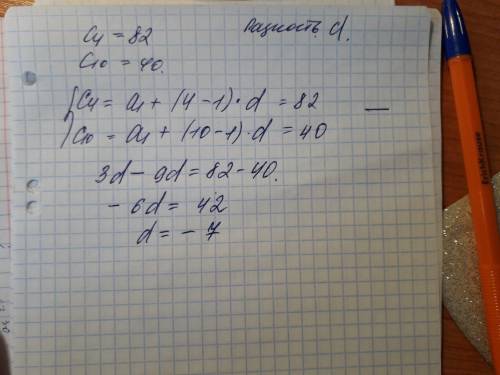 C₄ = 82 Разность d.
C₁₀ = 40.
C₄ = a₁ + (4-1)·d = 82 —
C₁₀ = a₁ + (10-1)·d = 40
3d - 9d = 82 - 40.
- 6d = 42
d = - 7